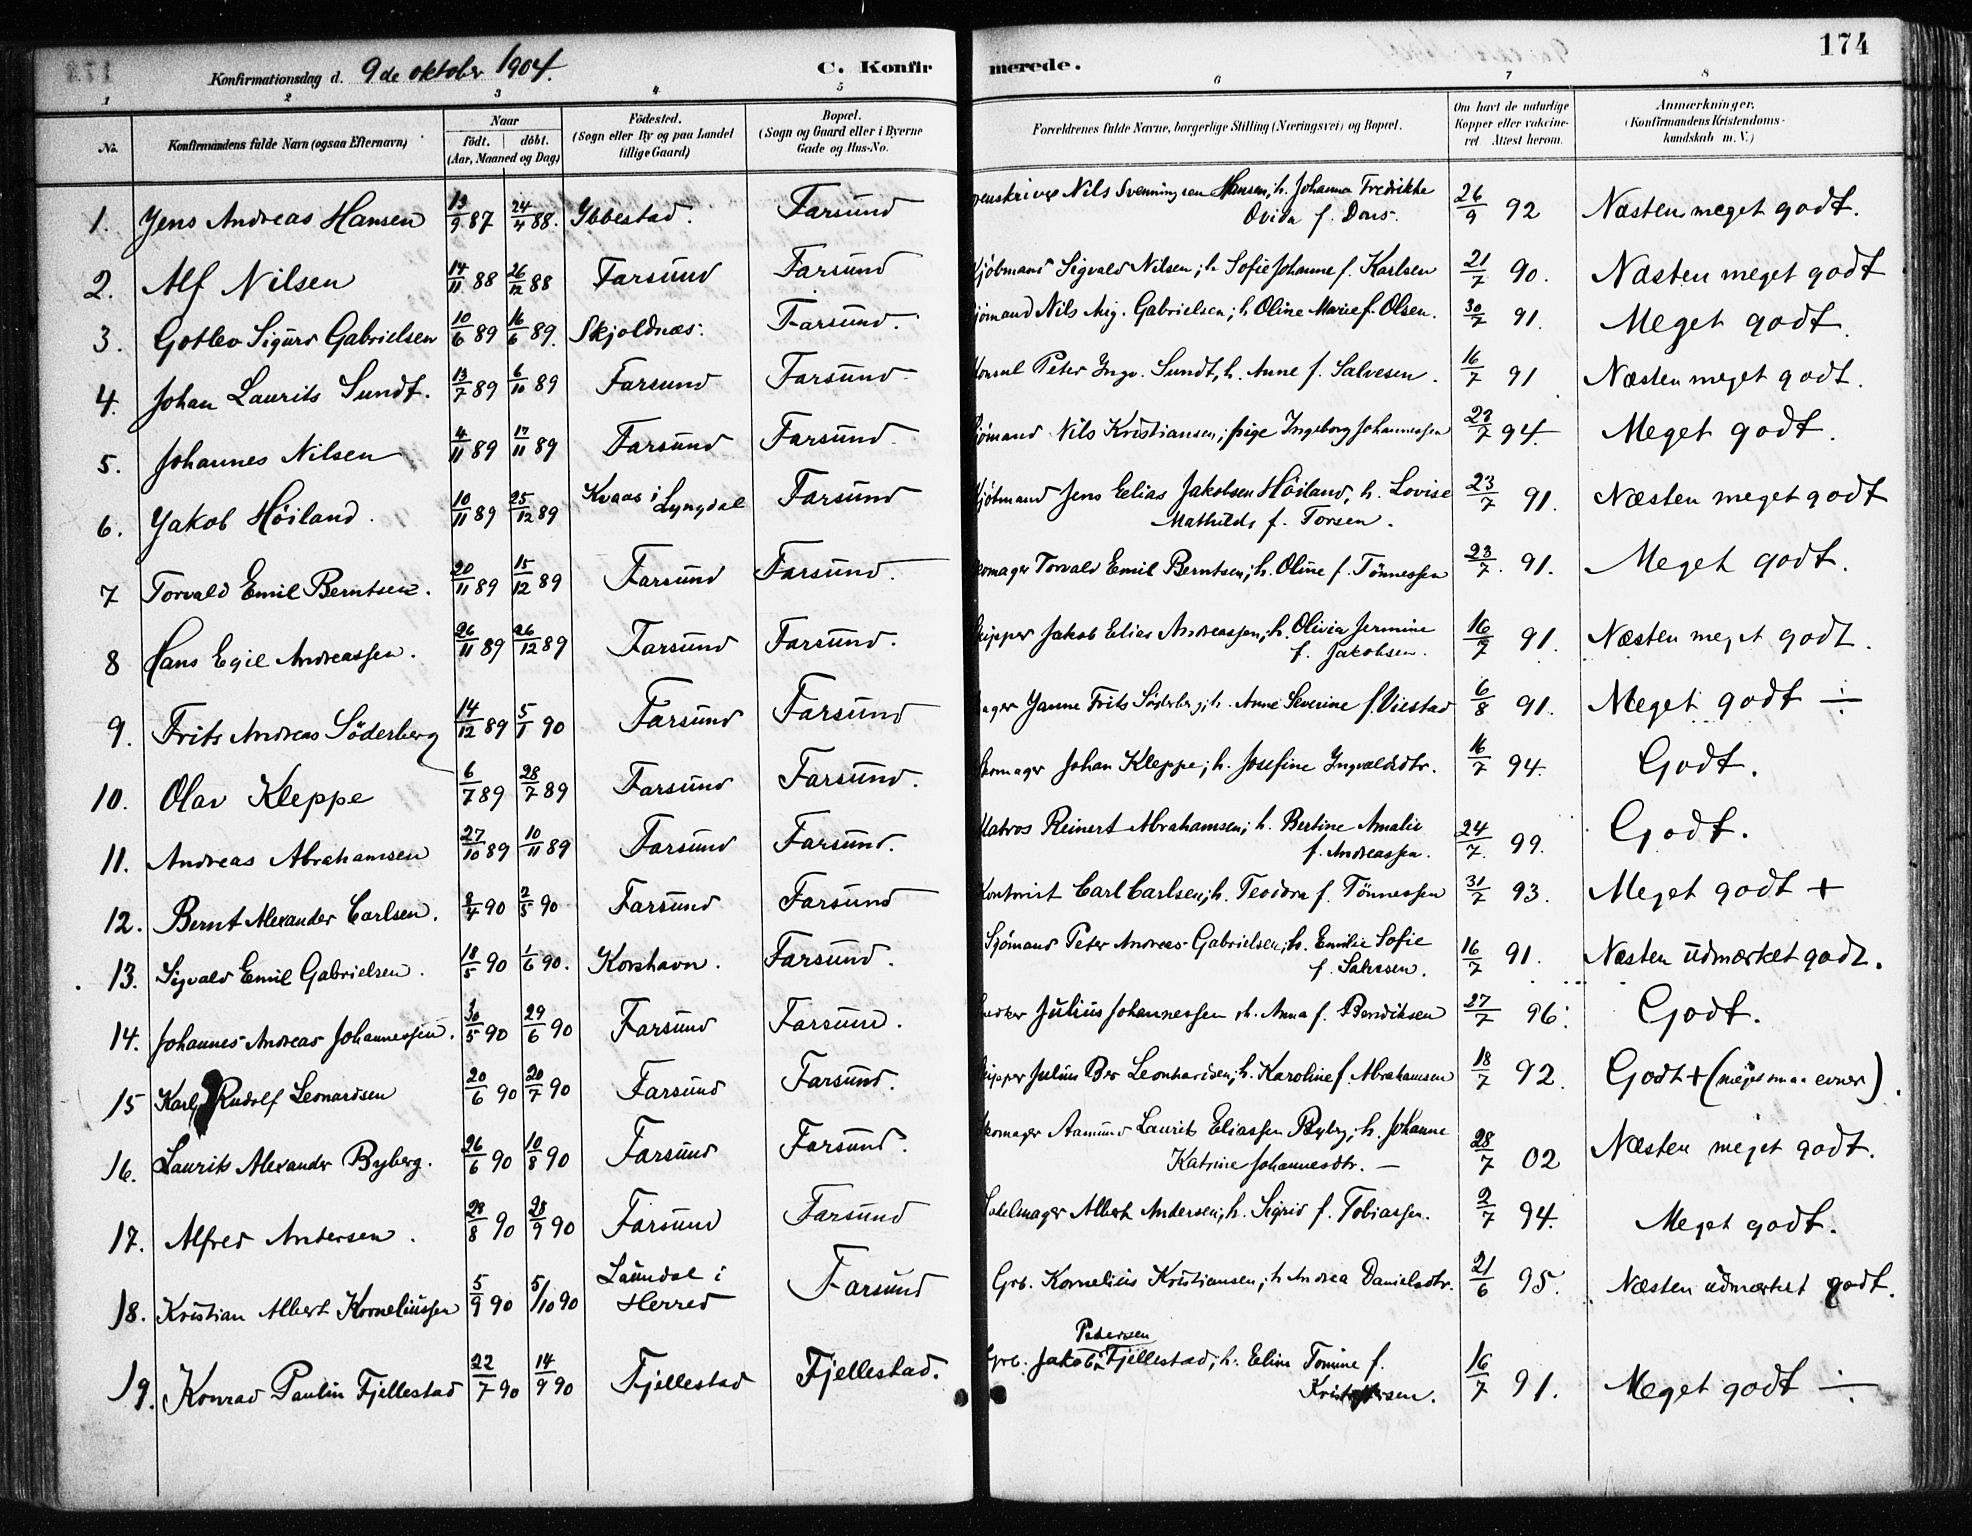 174
Konfirmationsdag d. 9de oktober 1904.
C. Konfirmerede.
1 2 3 4 5 6 7 8
No. Konfirmandens fulde Navn (ogsaa Efternavn) Naar født. døbt. (Aar, Maaned og Dag) Fødested. (Sogn eller By og paa Landet tillige Gaard) Bopæl. (Sogn og Gaard eller i Byerne Gade og Hus-No. Forældrenes fulde Navne, borgerlige Stilling (Næringsvei) og Bopæl. Om havt de naturlige Kopper eller vakcineret. Attest herom. Anmærkninger. (Konfirmandens Kristendomskundskab m. V.)
1. Jens Andreas Hansen 13/9 87 24/4 88. Ibbestad. Farsund Nils Svenningsen Hansen, h. Johanna Fredrikke 26/9 92 Næsten meget godt.
Ovida f. Dons.
2. Alf Nilsen 14/11 88 26/12 88 Farsund Farsund Sigvald Nilsen; h. Sofie Johanne f. Karlsen 21/7 90. Næsten meget godt
3. Gotlev Sigurd Gabrielsen 10/6 89 16/6 89. Skjoldnæs. Farsund. Nils Aug. Gabrielsen; h. Oline Marie f. Olsen. 30/7 91. Meget godt.
4. Johan Laurits Sundt. 13/7 89 6/10 89 Farsund Farsund. Peter Ingv. Sundt, h. Anne f. Salvesen. 16/7 91 Næsten meget godt.
5. Johannes Nilsen 4/11 89 17/11 89 Farsund Farsund. Nils Kristiansen; pige Ingeborg Johannessen 94. Meget godt.
6. Jakob Høiland. 10/11 89 25/12 89 Kvaas i Lyngdal Farsund Jens Elias Jakobsen Høiland, h. Lovise 23/7 91. Næsten meget godt
Mathilde f. Torsen.
7 Torvald Emil Berntsen. 20/11 89 15/12 89 Farsund Farsund. Torvald Emil Berntsen; h. Oline f. Tönnessen 23/7. 91. Meget godt.
8 Hans Egil Andreassen. 26/11 89 26/12 89 Farsund Farsund. Jakob Elias Andreassen, h. Olivia Jermine 16/7 91. Næsten meget godt.
f. Jakobsen.
9. Frits Andreas Söderberg 14/12 89 5/1 90 Farsund Farsund Janne Frits Söderberg; h. Anne Severine f. Viestad 6/8 91. Meget godt ÷
10. Olav Kleppe 6/7 89 28/7 89 Farsund Farsund. Johan Kleppe; h. Josefine Ingvaldsdtr. 16/7 94. Godt.
11. Andreas Abrahamsen 27/10 89 10/11 89 Farsund Farsund. Matros Reinert Abrahamsen; h. Bertine Amalie 24/7. 99. Godt.
f. Andreassen.
12. Bernt Alexander Carlsen. 8/4 90 2/5 90 Farsund Farsund Carl Carlsen; h. Teodora f. Tönnessen 31/7 93. Meget godt +
13. Sigvald Emil Gabrielsen. 18/5 90 1/6 90. Korshavn. Farsund. Sjømand Peter Andreas Gabrielsen; h. Emilie Sofie 16/7 91. Næsten udmærket godt.
f. Salvesen.
14. Johannes Andreas Johannessen. 30/5 90 29/6 90 Farsund Farsund. Julius Johannessen, h. Anna f. Bendiksen 27/7 96. Godt.
15 Karl Rudolf Leonardsen 20/6 90 20/7 90 Farsund Farsund. Julius Ber Leonhardsen; h. Karoline f. Abrahamsen 18/7 92. Godt + (meget smaa evner).
16. Laurits Alexander Byberg. 26/6 90 10/8 90 Farsund Farsund. Aamund Laurits Eliassen Byberg; h. Johanne 28/7 02 Næsten meget godt.
Katrine Johannesdtr. —
17. Alfred Andersen. 28/8 90 28/9 90 Farsund Farsund Sadelmager Albert Andersen, h. Sigrid f. Tobiassen. 2/7 94. Meget godt.
18. Kristian Albert Korneliussen 5/9 90 5/10 90 Laundal i Herred Farsund Grb. Kornelius Kristiansen; h. Andrea Danielsdtr. 21/6 95. Næsten udmærket godt.
19. Konrad Paulin Fjellestad 22/7 90 14/9 90 Fjellestad Fjellestad. Grb. Jakob Pedersen Fjellestad; h. Eline Tomine f. 16/7 91. Meget godt ÷
Kristoffersen.